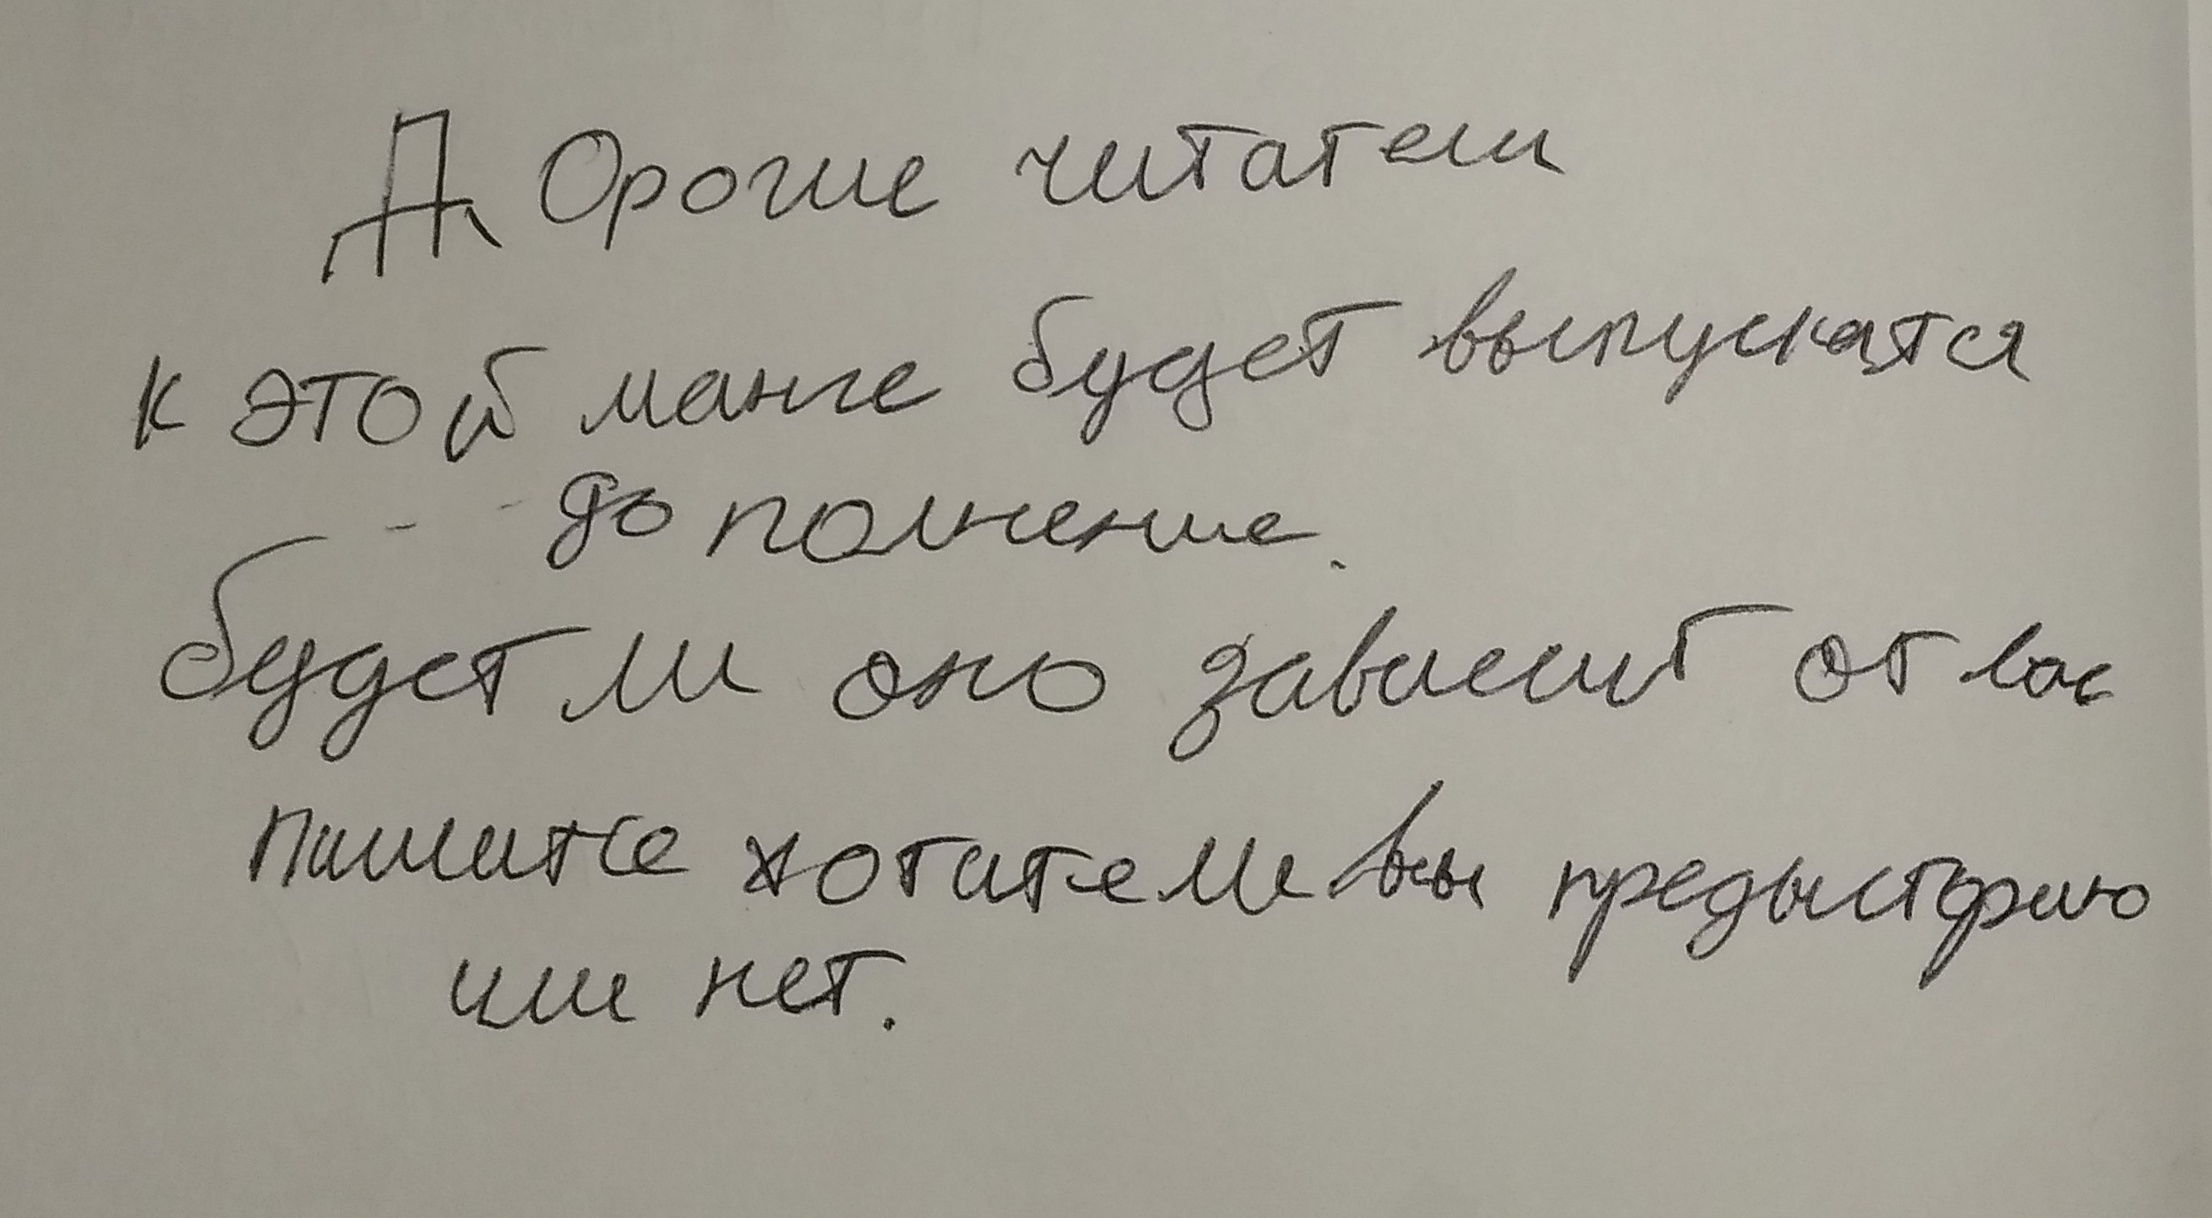 Дорогие читатели
к этой манге будет выпускатся
дополнение.
будет ли оно зависит от вас
пишите хотите ли вы предысторию
или нет.